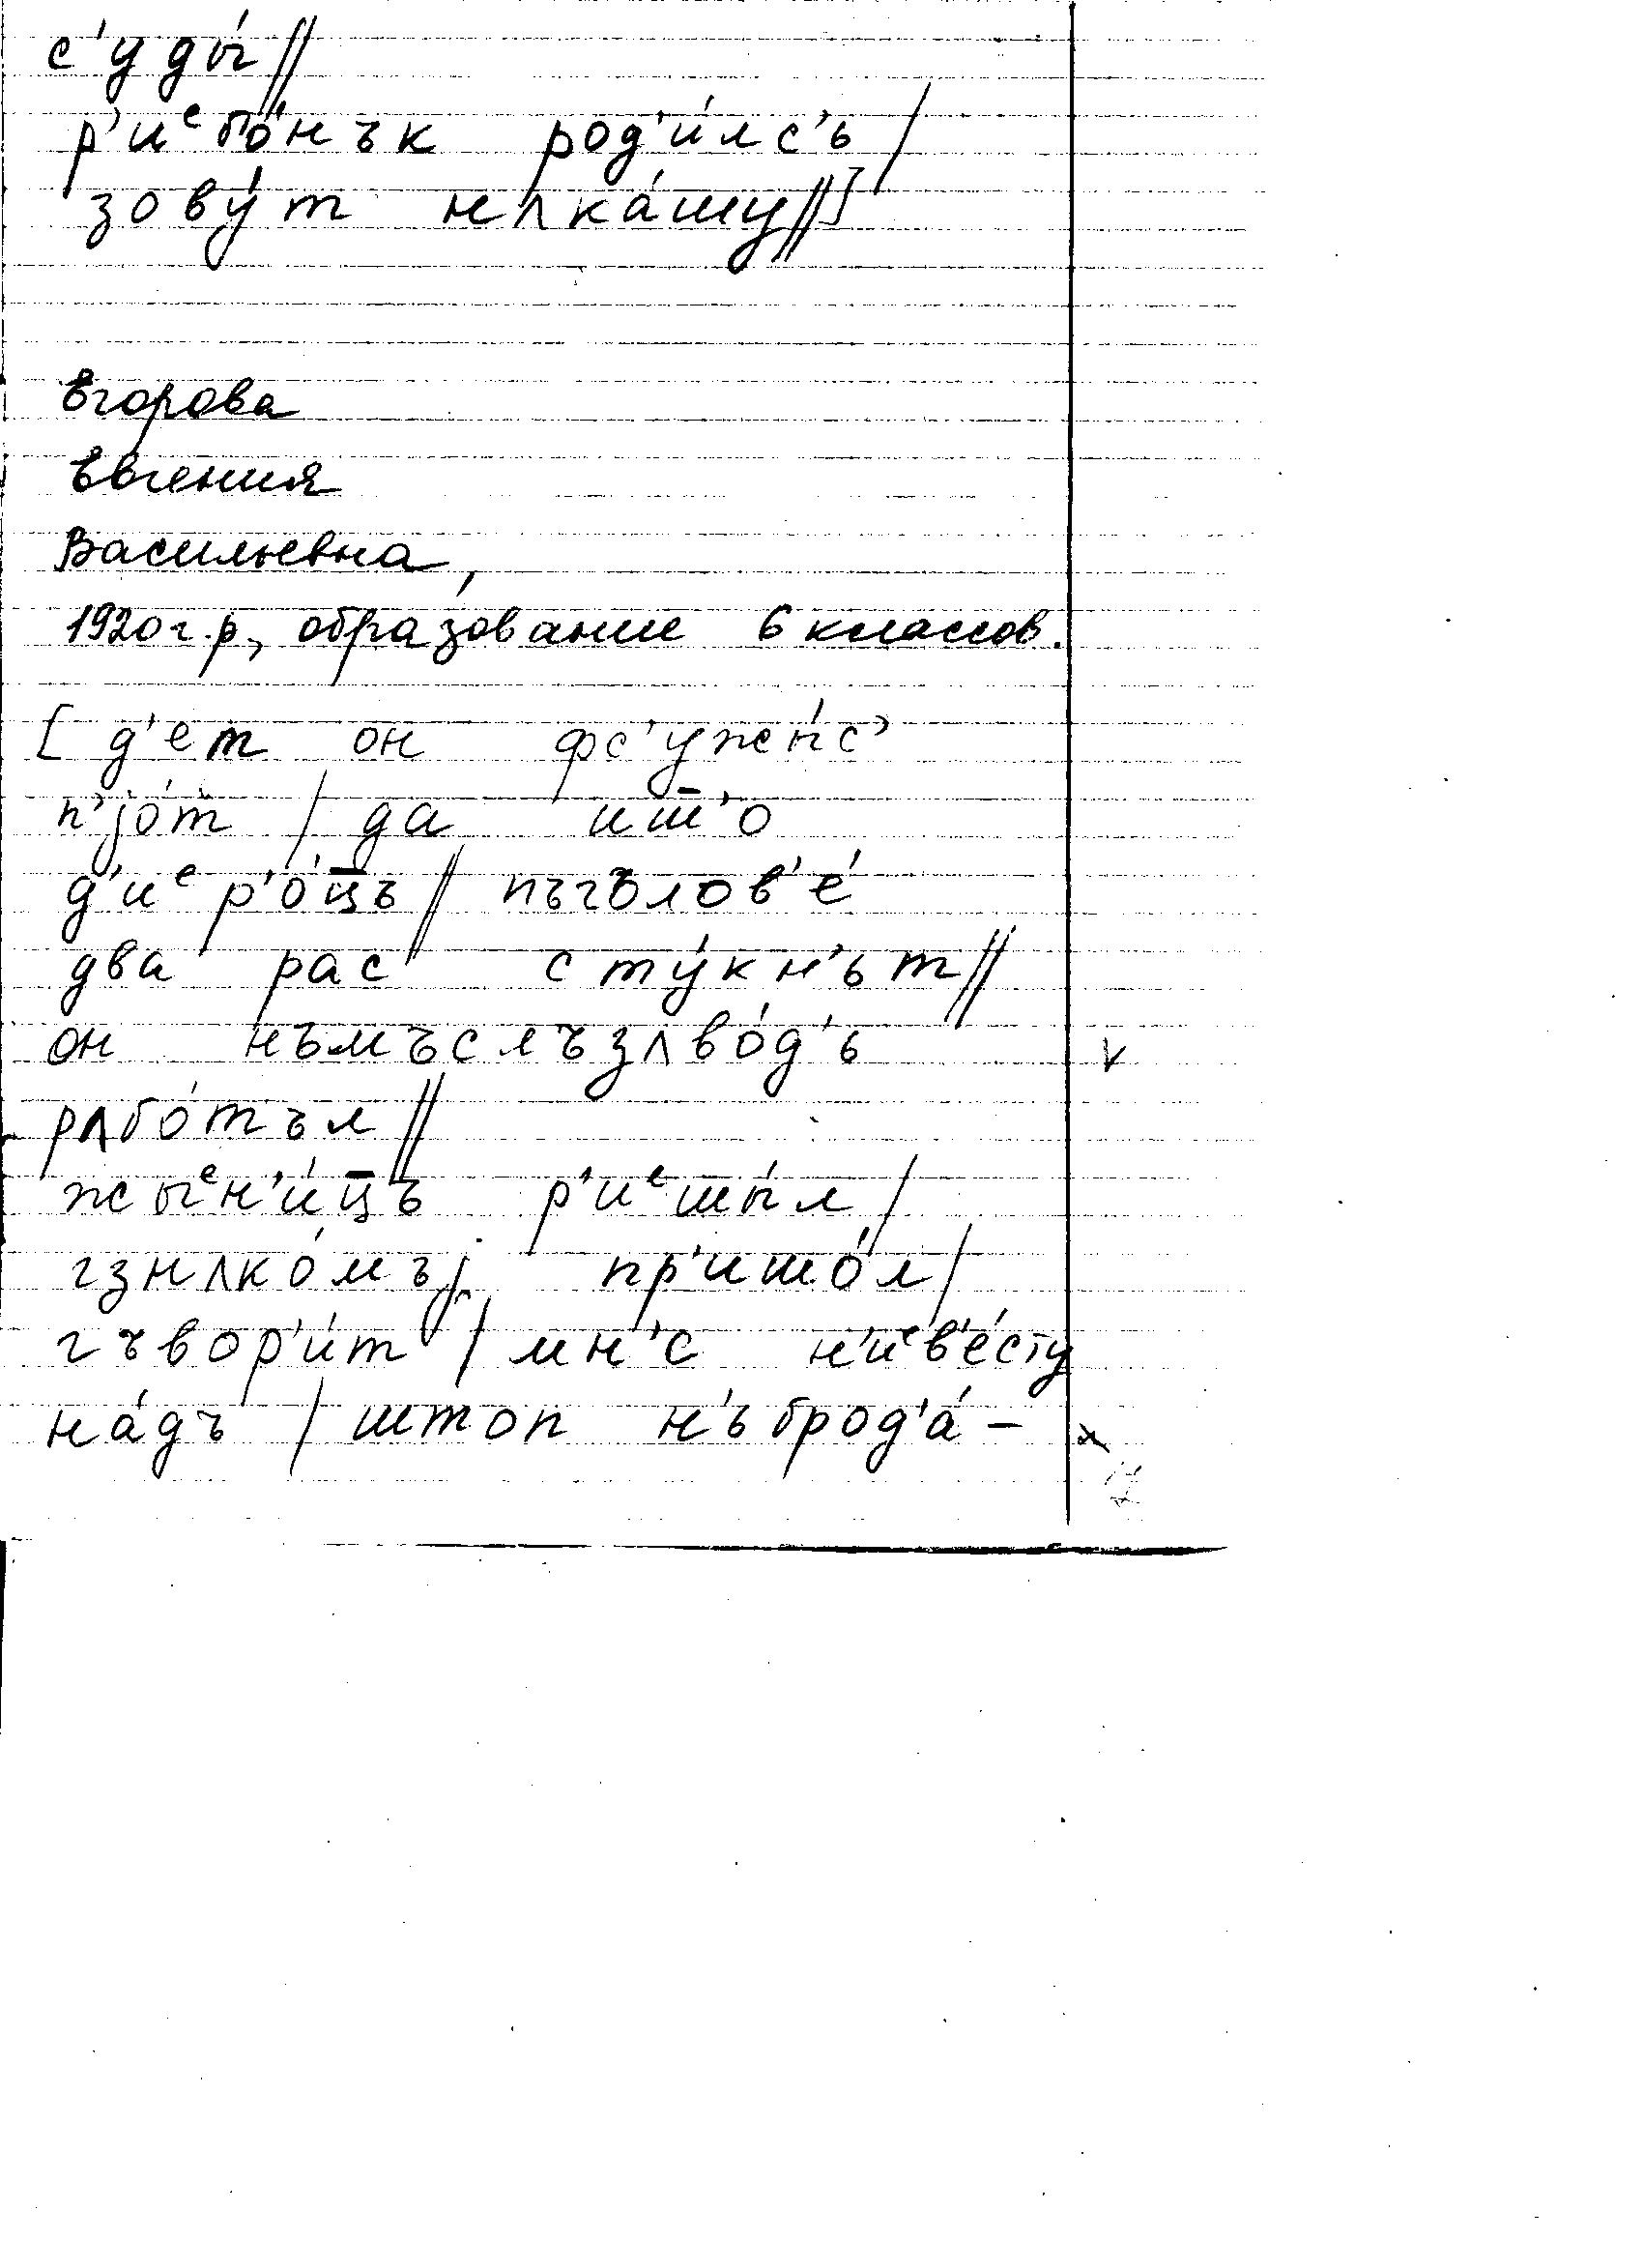 с'уды́//
р'иᵉбо́нък род'и́лс'ь/
зову́т нʌка́шу//]
Егорова
Евгения
Васильевна,
1920 г.р., образование 6 классов.
[д'ет он фс'у жы́с'
п'jо́т / да ишш̅'о
д'иᵉр'о́ц̅ъ // пъгълов'е́
два рас сту́кн'ът //
он нъмъслъзʌво́д'ь
рʌбо́тъл //
жыᵉн'и́ц̅ъ р'иᵉшы́л /
гзнʌко́мъj пр'ишо́л /
гъвор'и́т / мн'е н'иᵉв'е́сту
на́дъ / штоп н'ьброд'а́ -